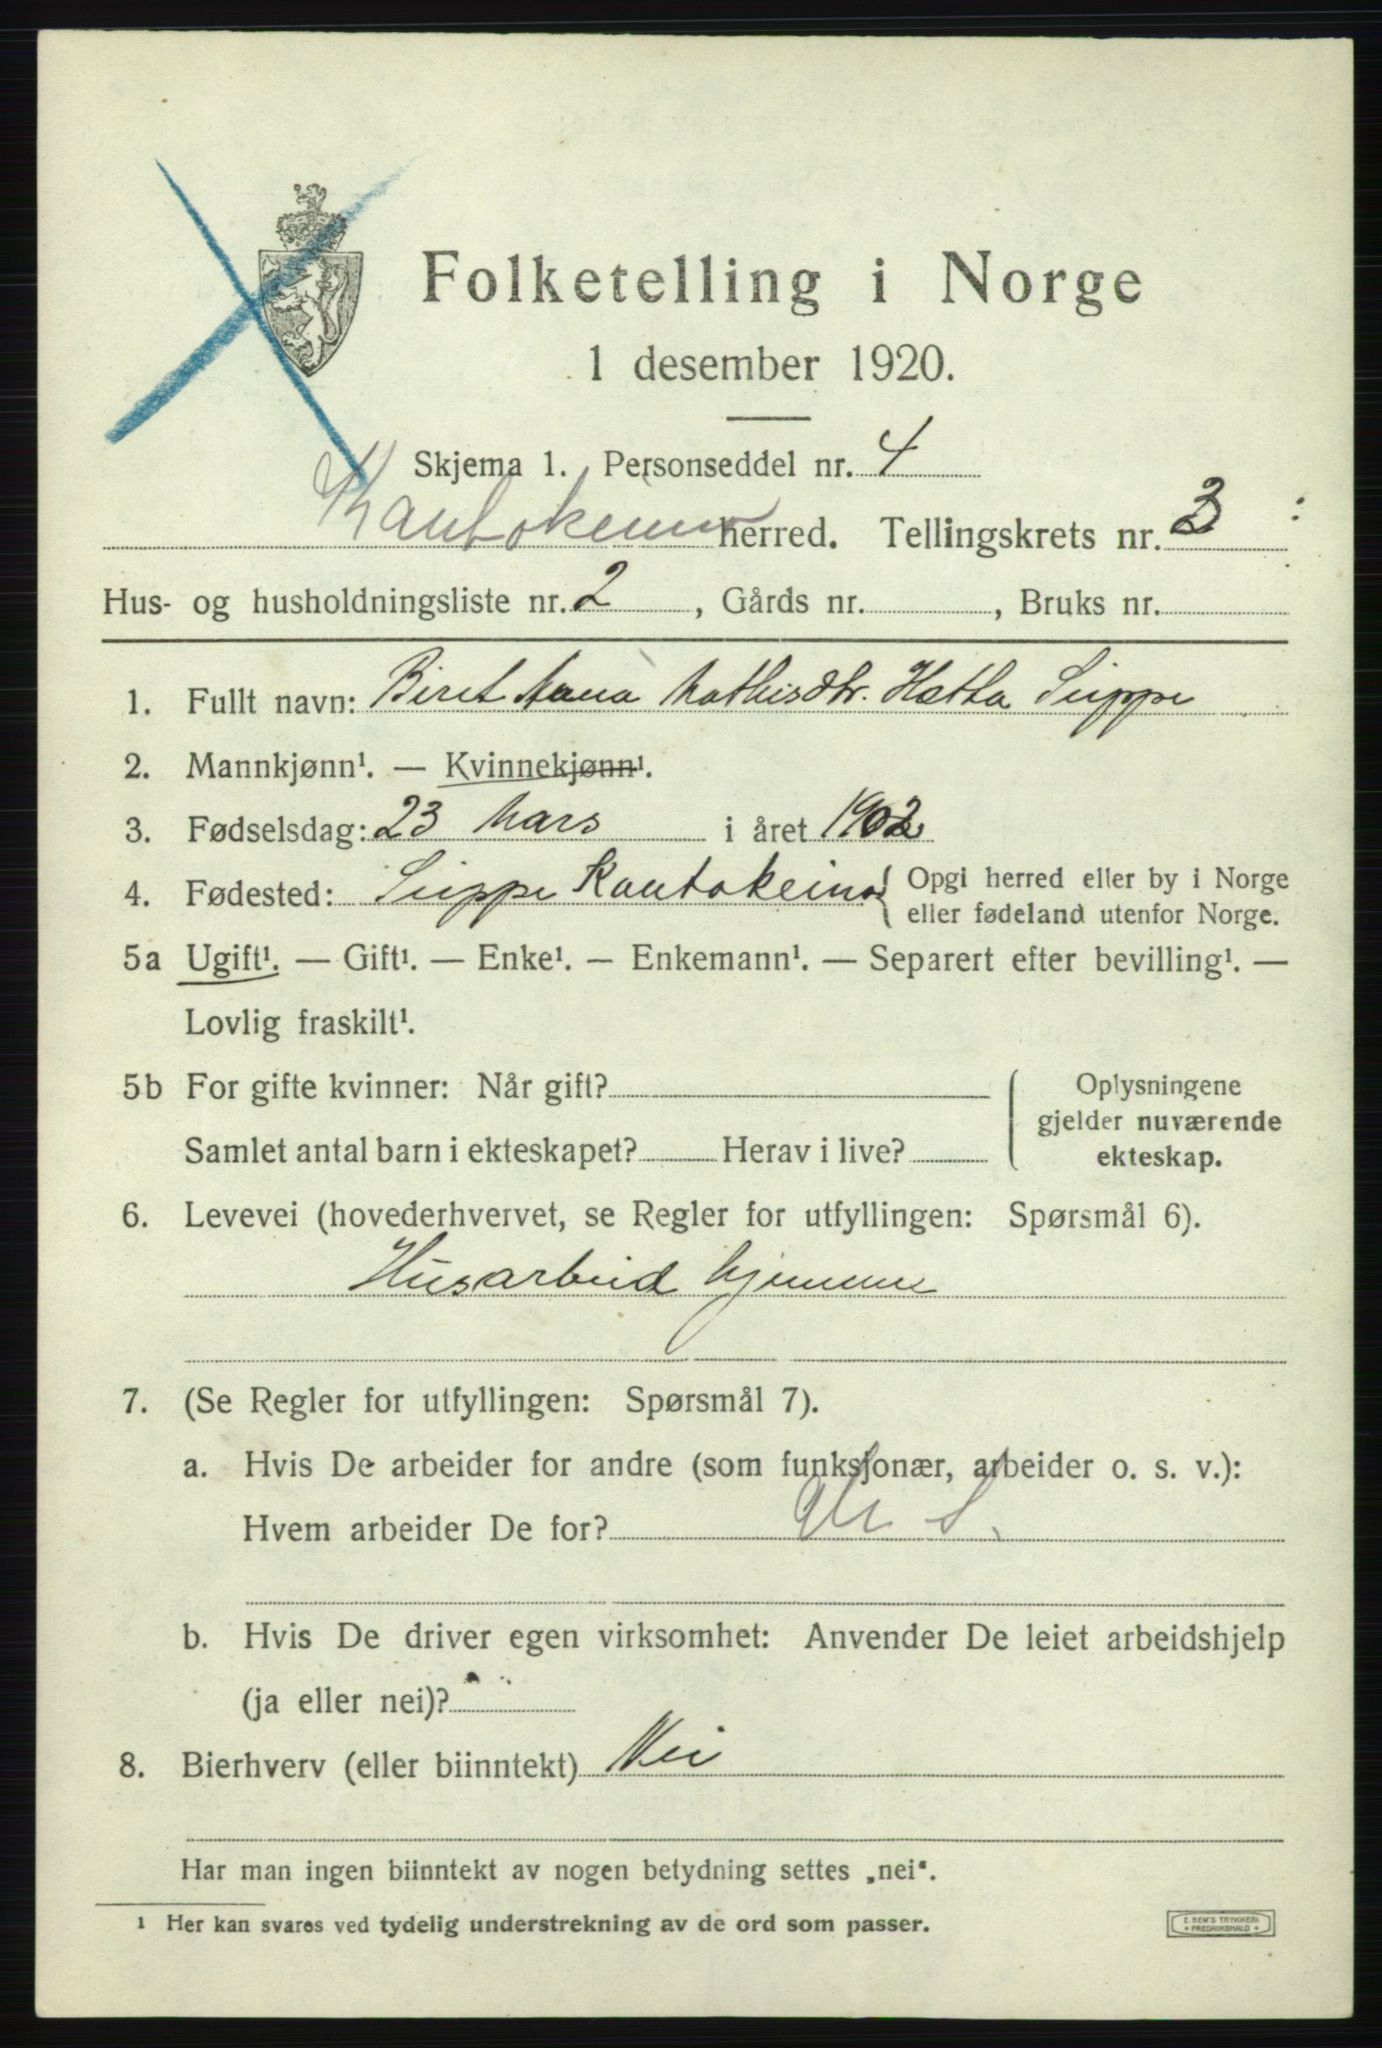 Folketelling i Norge
1 desember 1920.
Skjema 1. Personseddel nr. 4
Kautokeino herred. Tellingskrets nr. 3
Hus- og husholdningsliste nr. 2, Gårds nr. , Bruks nr.
1. Fullt navn: Biret Anna Mathisdtr. Hætta Siuppe
2. Mannkjønn¹. — Kvinnekjønn¹.
3. Fødselsdag: 23 Mars i året 1902
4. Fødested: Kautokeino { Opgi herred eller by i Norge
eller fødeland utenfor Norge.
5a Ugift¹. — Gift¹. — Enke¹. — Enkemann¹. — Separert efter bevilling¹. —
Lovlig fraskilt¹.
5b For gifte kvinner: Når gift?
Samlet antal barn i ekteskapet? Herav i live?
Oplysningene
gjelder nuværende
ekteskap.
6. Levevei (hovederhvervet, se Regler for utfyllingen: Spørsmål 6).
Husarbeid hjemme
7. (Se Regler for utfyllingen: Spørsmål 7).
a. Hvis De arbeider for andre (som funksjonær, arbeider o. s. v.):
Hvem arbeider De for?
b. Hvis De driver egen virksomhet: Anvender De leiet arbeidshjelp
(ja eller nei)?
8. Bierhverv (eller biinntekt) Nei
Har man ingen biinntekt av nogen betydning settes „nei“.
¹ Her kan svares ved tydelig understrekning av de ord som passer.
E. SEM'S TRYKKERI
• FREDRIKSHALD •